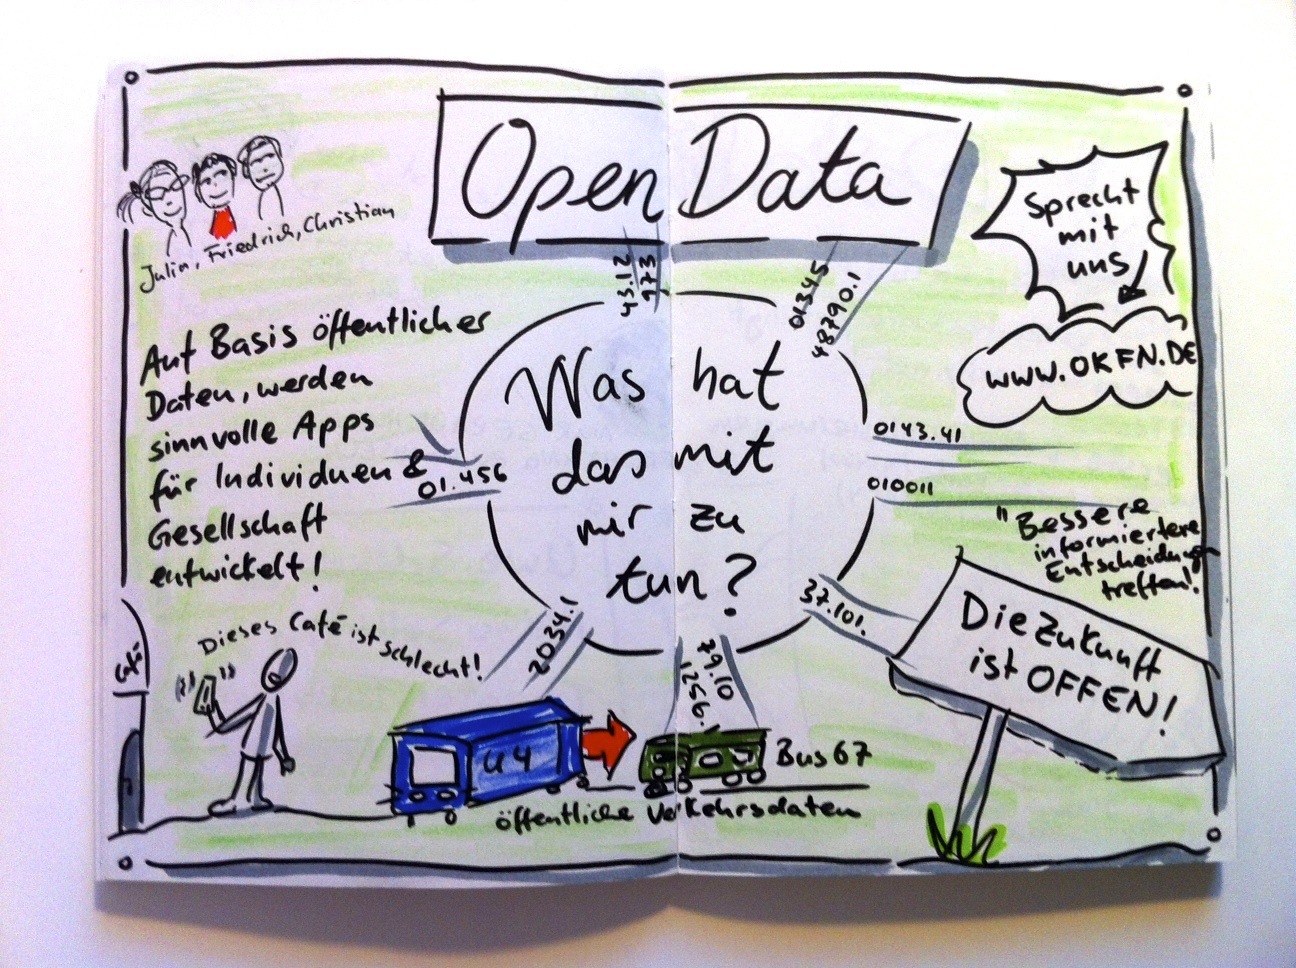 Open Data
Julia, Friedrich, Christian
Sprecht
mit
uns
www.OKFN.DE
Auf Basis öffentlicher
Daten, werden
sinnvolle Apps
für Individuen &
Gesellschaft
entwickelt!
43.12
973
01345
48790.1
Was hat
das mit
mir zu
tun?
01.456
0143.41
010011
"Bessere
informiertere
Entscheidung
treffen!
37.101.
2034.1
79.10
1256.
Die Zukunft
ist OFFEN!
Café
Dieses Café ist schlecht!
U4
Bus 67
öffentliche Verkehrsdaten